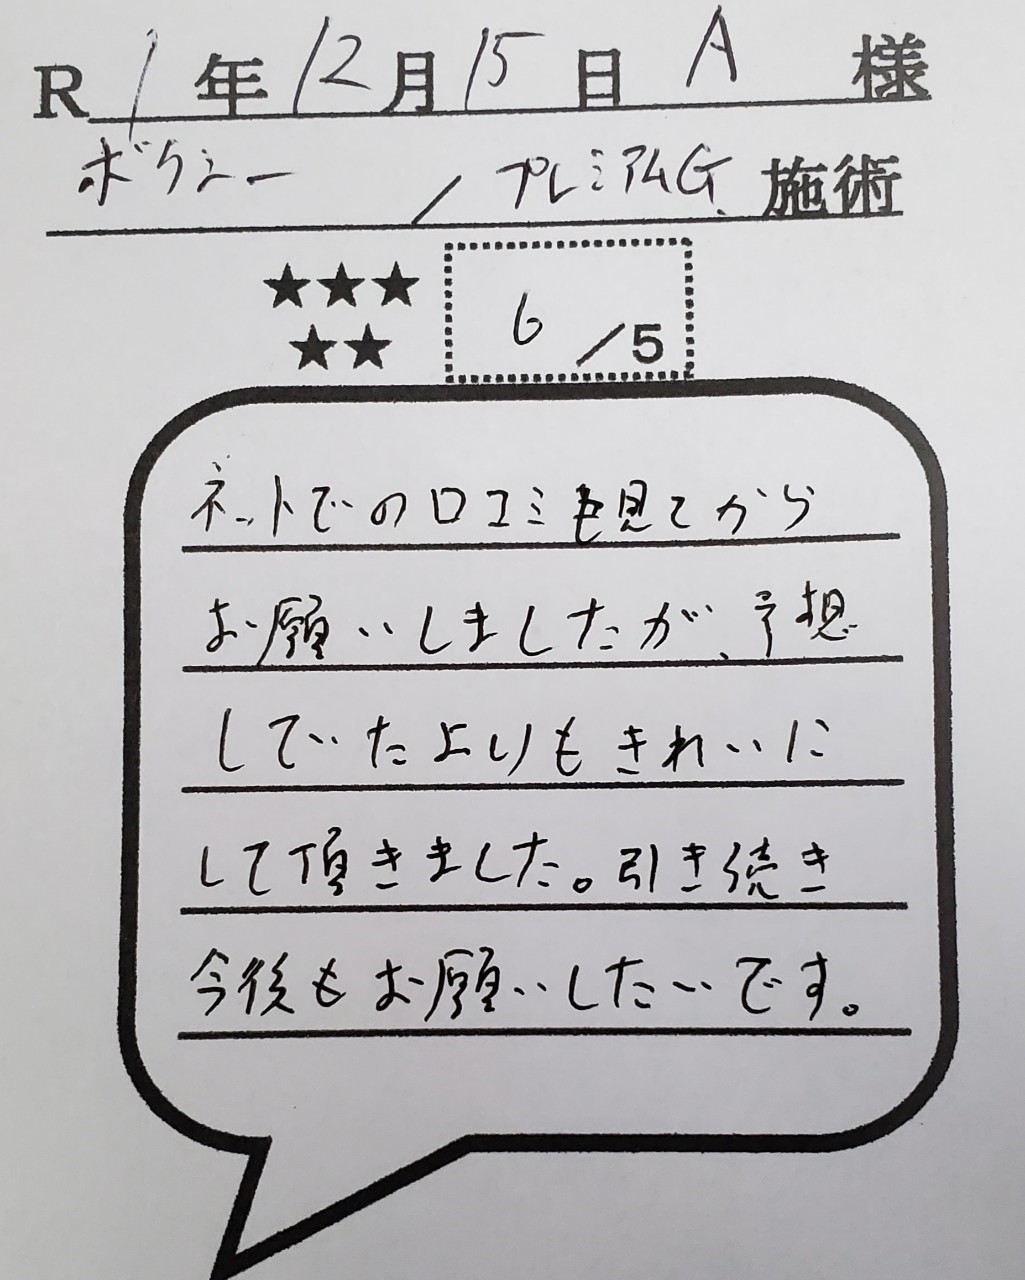 R 1年12月15日 A 様
ボクシー / プレミアムG 施術
★★★
★★
6/5
ネットでの口コミも見てから
お願いしましたが、予想
していたよりもきれいに
して頂きました。引き続き
今後もお願いしたいです。